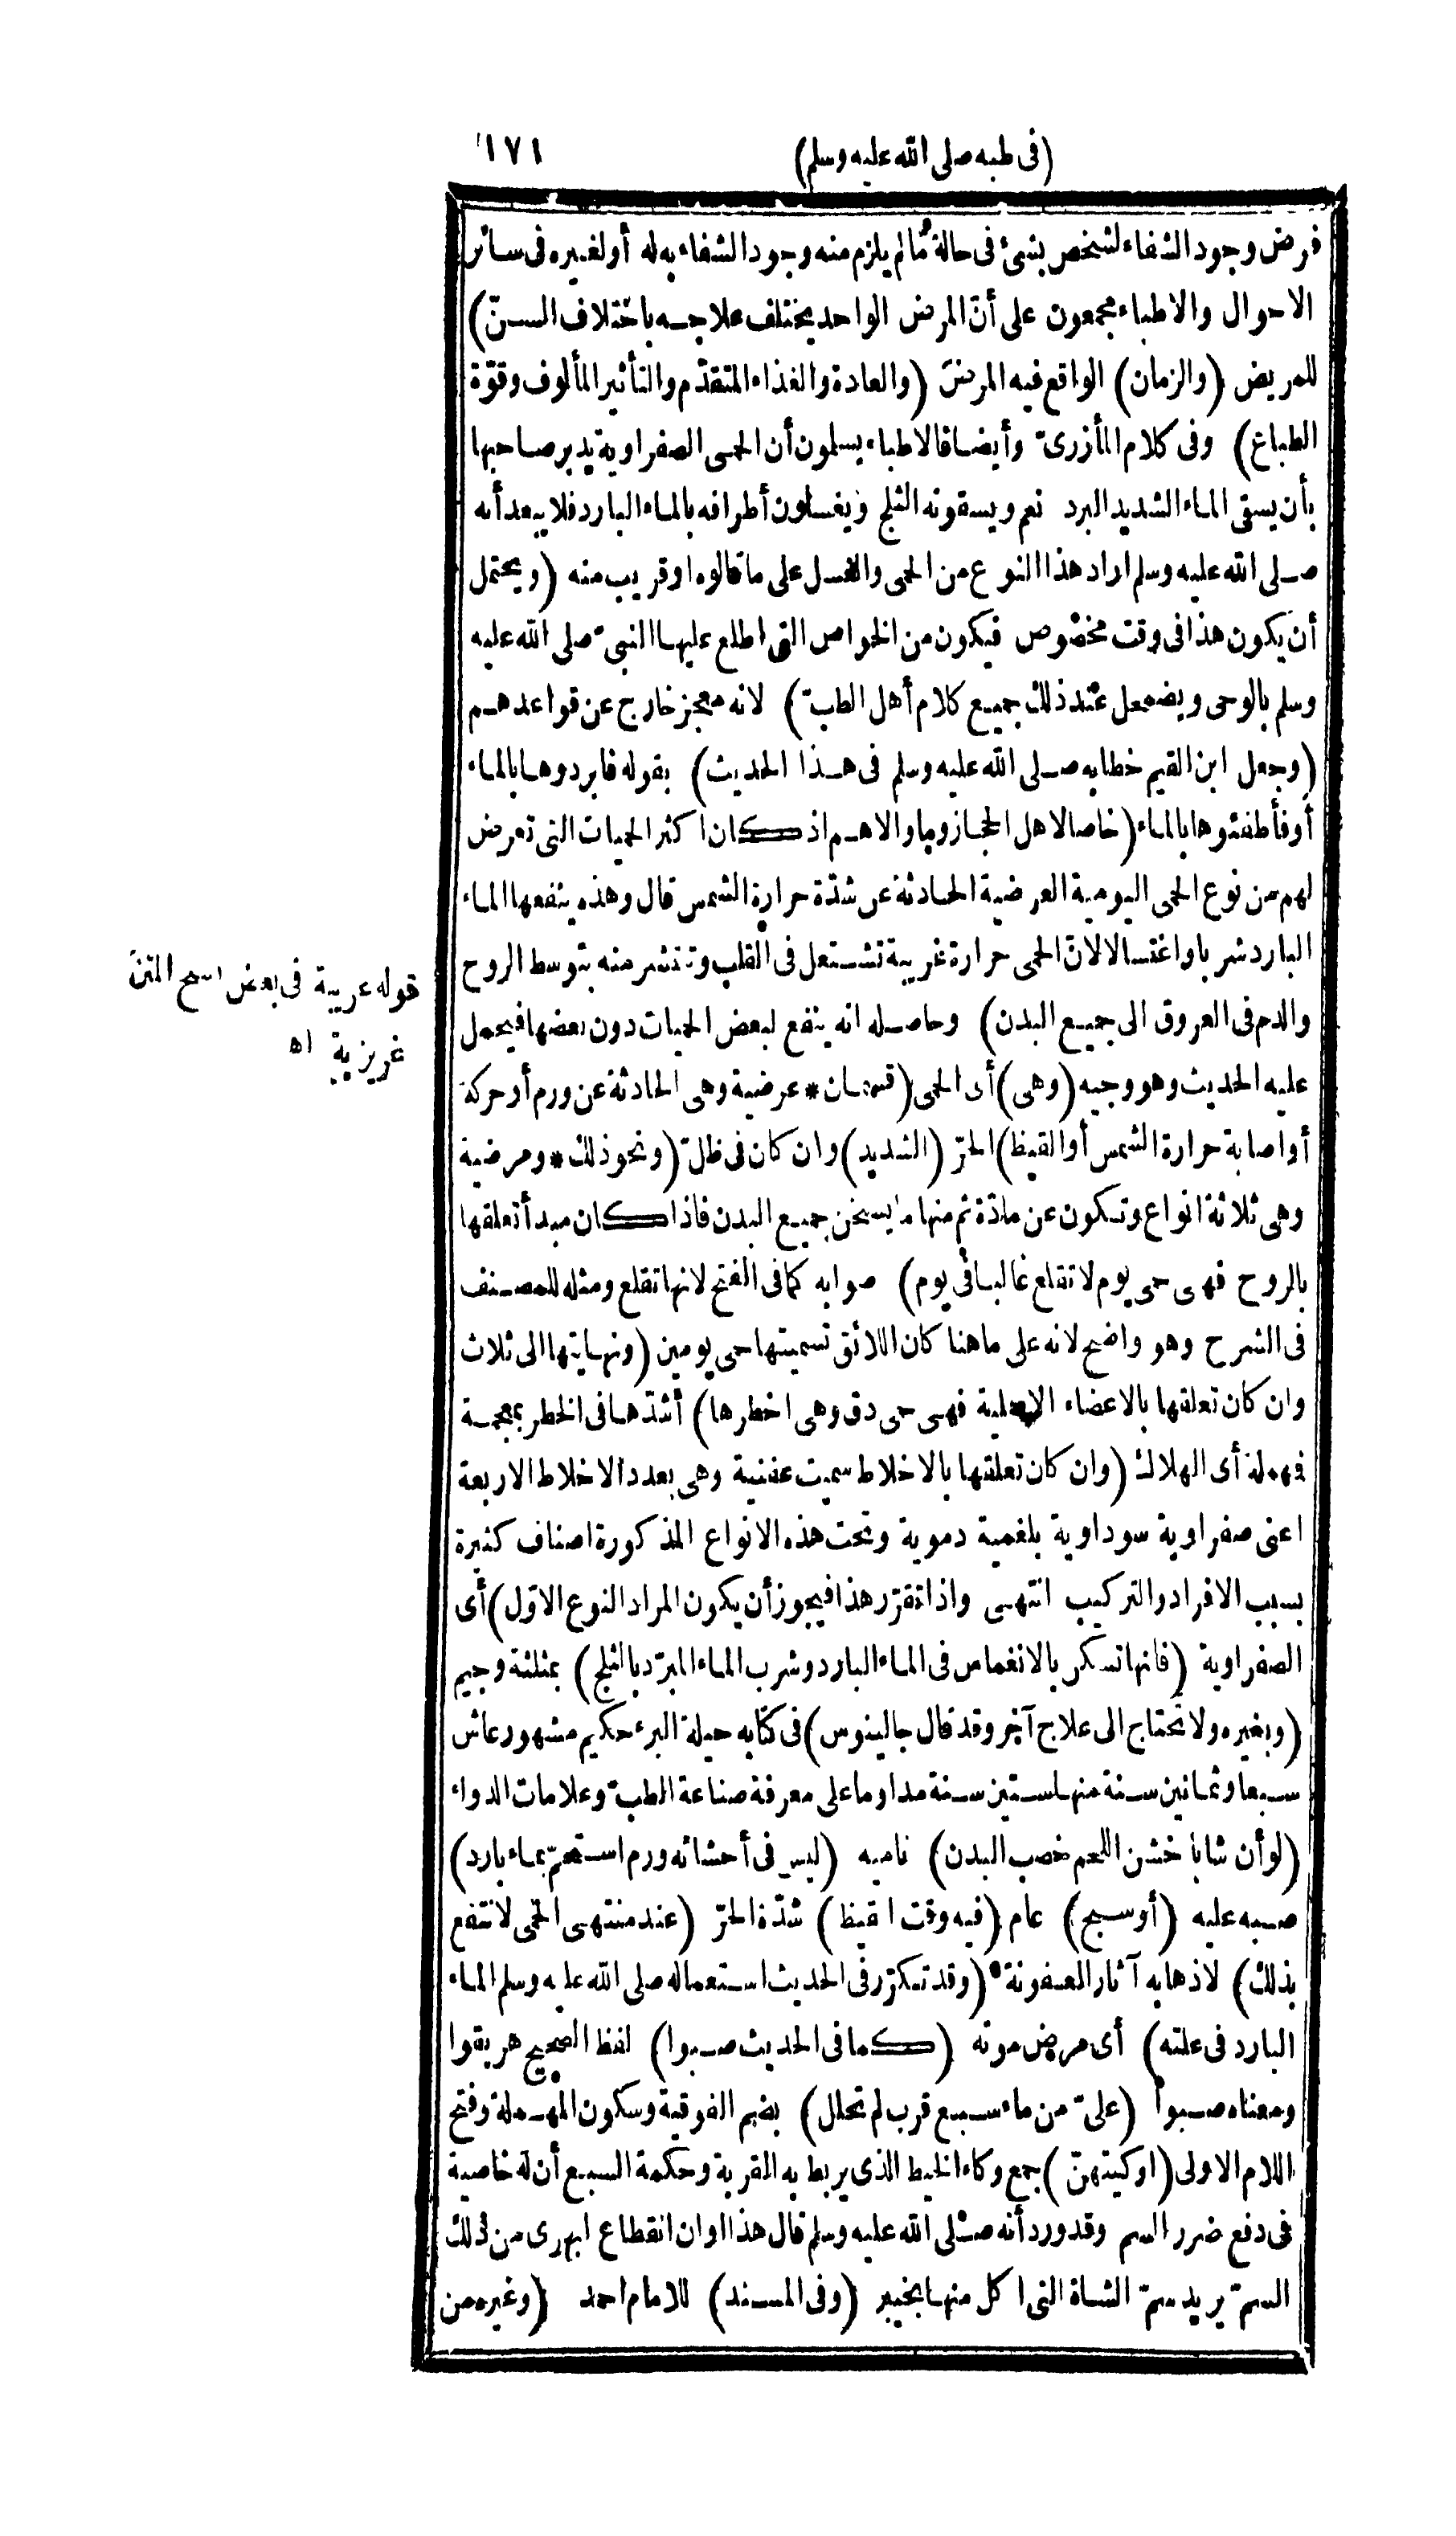 (فى طبه صلى الله عليه وسلم)
١٧١
فرض وجود الشفاء لشخص بشئ فى حالة مّا لم يلزم منه وجود الشفاء به له أو لغيره فى سائر
الاحوال والاطباء مجمعون على أنّ المرض الواحد يختلف علاجه باختلاف السنّ)
للمريض (والزمان) الواقع فيه المرض (والعادة والغذاء المتقدّم والتأثير المألوف وقوّة
الطباع) وفى كلام المأزرىّ وأيضا فالاطباء يسلمون أن الحمى الصفراوية يدبر صاحبها
بأن يسقى الماء الشديد البرد نعم ويسقونه الثلج ويغسلون أطرافه بالماء البارد فلا يبعد أنه
صلى الله عليه وسلم اراد هذا النوع من الحمى والغسل على ما قالوه او قريب منه (ويحتمل
أن يكون هذا فى وقت مخصوص فيكون من الخواص التى اطلع عليها النبىّ صلى الله عليه
وسلم بالوحى ويضمحل عند ذلك جميع كلام أهل الطبّ) لانه معجز خارج عن قواعدهم
(وجعل ابن القيم خطابه صلى الله عليه وسلم فى هذا الحديث) بقوله فابردوها بالماء
أو فأطفئوها بالماء (خاصا لاهل الحجاز وما والاهم اذ كان اكثر الحميات التى تعرض
لهم من نوع الحمى اليومية العرضية الحادثة عن شدّة حرارة الشمس قال وهذه ينفعها الماء
البارد شربا واغتسالا لانّ الحمى حرارة غريبة تشتعل فى القلب وتنتشر منه بتوسط الروح
والدم فى العروق الى جميع البدن) وحاصله انه ينفع لبعض الحميات دون بعضها فيحمل
عليه الحديث وهو وجيه (وهى) أى الحمى (قسمان * عرضية وهى الحادثة عن ورم أو حركة
أو اصابة حرارة الشمس أو القيظ) الحرّ (الشديد) وان كان فى ظلّ (ونحو ذلك * ومرضية
وهى ثلاثة انواع وتكون عن مادّة ثم منها ما يسخن جميع البدن فاذا كان مبدأ تعلقها
بالروح فهى حمى يوم لا تقلع غالبا فى يوم) صوابه كما فى الفتح لانها تقلع ومثله للمصنف
فى الشرح وهو واضح لانه على ما هنا كان اللائق تسميتها حمى يومين (ونهايتها الى ثلاث
وان كان تعلقها بالاعضاء الاصلية فهى حمى دق وهى اخطرها) أشدّها فى الخطر بمعجمة
فمهملة أى الهلاك (وان كان تعلقها بالاخلاط سميت عفنية وهى بعدد الاخلاط الاربعة
اعنى صفراوية سوداوية بلغمية دموية وتحت هذه الانواع المذكورة اصناف كثيرة
بسبب الافراد والتركيب انتهى واذا تقرّر هذا فيجوز أن يكون المراد النوع الاوّل) أى
الصفراوية (فانها تسكن بالانغماس فى الماء البارد وشرب الماء المبرّد بالثلج) بمثلثة وجيم
(وبغيره ولا تحتاج الى علاج آخر وقد قال جالينوس) فى كتابه حيلة البرء حكيم مشهور عاش
سبعا وثمانين سنة منها ستين سنة مداوما على معرفة صناعة الطبّ وعلامات الدواء
(لو أن شابا خشن اللحم خصب البدن) ناميه (ليس فى أحشائه ورم استحمّ بماء بارد)
صبه عليه (أو سبح) عام (فيه وقت القيظ) شدّة الحرّ (عند منتهى الحمّى لانتفع
بذلك) لاذهابه آثار العفونة (وقد تكرّر فى الحديث استعماله صلى الله عليه وسلم الماء
البارد فى علته) أى مرض موته (كما فى الحديث صبوا) لفظ الصحيح هريقوا
ومعناه صبوا (علىّ من ماء سبع قرب لم تحلل) بضم الفوقية وسكون المهملة وفتح
اللام الاولى (اوكيتهنّ) جمع وكاء الخيط الذى يربط به القربة وحكمة السبع أن له خاصية
فى دفع ضرر السم وقد ورد أنه صلى الله عليه وسلم قال هذا اوان انقطاع ابهرى من ذلك
السمّ يريد سمّ الشاة التى اكل منها بخيبر (وفى المسند) للامام احمد (وغيره من
قوله عريبة فى بعض نسخ المتن
غريزية اه